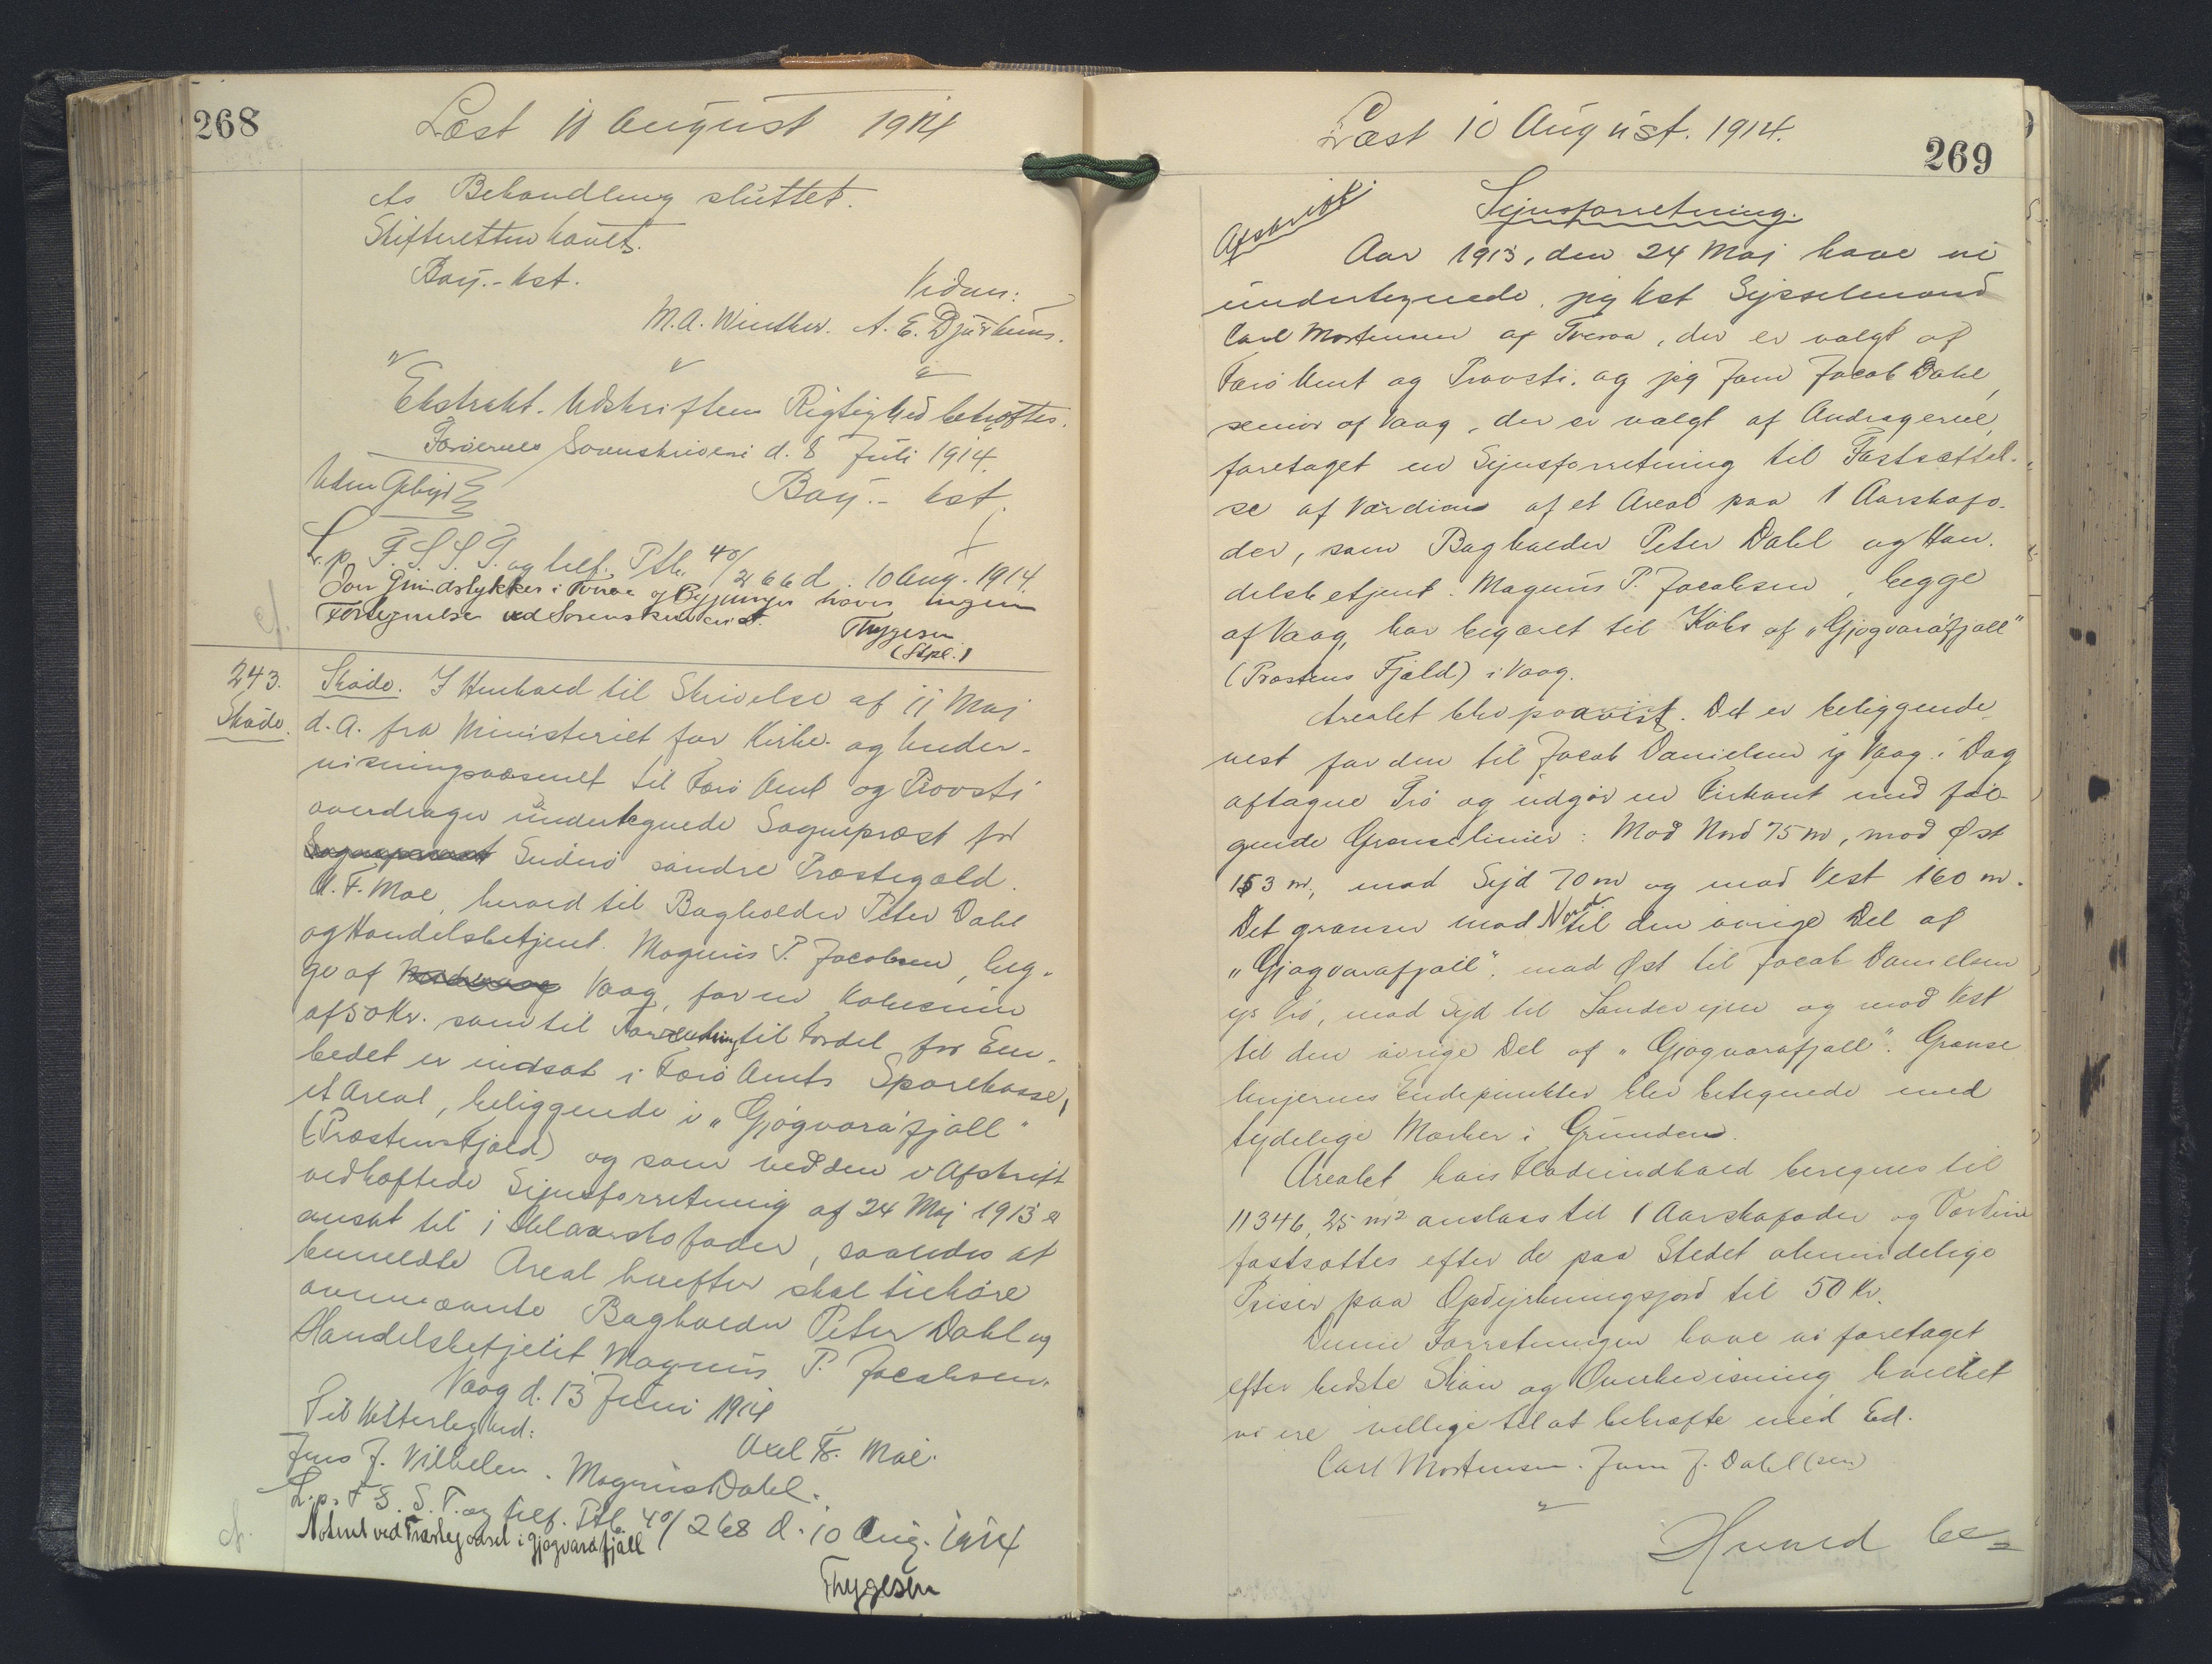 268
Læst 10 August 1914
ets Behandling sluttet.
Skifteretten hævet.
Bay.- kst.
Vidner:
M. A. Winther. A. E. Djurhuus.
" " "
Ekstrakt-Udskriftens Rigtighed bekræftes.
Færøernes Sorenskriveri d. 8 Juli 1914.
Uden Gebyr
Bay.- kst.
L. p. F. S. S. T. og tilf. Ptb. 40/266 d. 10 Aug. 1914.
Som Grundstykker i og Bygninger haves ingen
Fortegnelse ved Sorenskriveriet.
Thygesen
(Stpl.)
243.
Skøde.
Skøde. I Henhold til Skrivelse af 11 Maj
d. A. fra Ministeriet for Kirke- og Under-
visningsvæsenet til Færø Amt og Provsti
overdrager undertegnede Sognepræst for
Sognepræst Suderø søndre Præstegæld.
A. F. Moe, herved til Bogholder Peter Dahl
og Handelsbetjent Magnus P. Jacobsen, beg-
ge af Vaag, for en Købesum
af 50 Kr. som til Forrentning til Fordel for Em-
bedet er indsat i Færø Amts Sparekasse,
et Areal, beliggende i "Gjøgvaráfjall"
(Præstens Fjæld) og som ved den i Afskrift
vedhæftede Synsforretning af 24 Maj 1913 er
ansat til 1 Aarskofoder, saaledes at
bemeldte Areal herefter skal tilhøre
ovennævnte Bogholder Peter Dahl og
Handelsbetjent Magnus P. Jacobsen.
Vaag d. 13 Juni 1914
Til Vitterlighed:
Axel F. Moe.
Jens J. Vilhelm. Magnus Dahl.
L. p. F. S. S. T. og tilf. Ptb. 40/268 d. 10 Aug. 1914
Noteret ved i Gjøgvaráfjall
Thygesen
Læst 10 August. 1914.
269
Afskrift
Synsforretning.
Aar 1913, den 24 Maj have vi
undertegnede, jeg kst Sysselmand
Carl Mortensen af Tveraa, der er valgt af
Færø Amt og Provsti, og jeg Joen Jacob Dahl,
senior af Vaag, der er valgt af Andragerne,
foretaget en Synsforretning til Fastsættel-
se af Værdien af et Areal paa 1 Aarskofo-
der, som Bogholder Peter Dahl og Han-
delsbetjent Magnus P. Jacobsen, begge
af Vaag, har begæret til Købs af "Gjøgvaráfjall"
(Præstens Fjæld) i Vaag.
Arealet blev paavist. Det er beliggende
vest for den til Jacob Danielsen i Vaag i Dag
aftagne Trø og udgør en Firkant med føl-
gende Grænselinier: Mod Nord 75 m, mod Øst
153 m, mod Syd 70 m og mod Vest 160 m.
Det grænser mod Nord til den øvrige Del af
"Gjøgvaráfjall", mod Øst til Jacob Danielsen
Trø, mod Syd til Landevejen og mod Vest
til den øvrige Del af "Gjøgvaráfjall". Grænse
linjernes Endepunkter blev betegnede med
tydelige Mærker i Grunden.
Arealet, hvis Fladeindhold beregnes til
11346,25 m² anslaas til 1 Aarskofoder og Værdien
fastsættes efter de paa Stedet almindelige
Priser paa Opdyrkningsjord til 50 Kr.
Denne Forretningen have vi foretaget
efter bedste Skøn og Overbevisning, hvilket
vi ere villige til at bekræfte med Ed.
Carl Mortensen. Joen J. Dahl (sen)
"
Herved be=